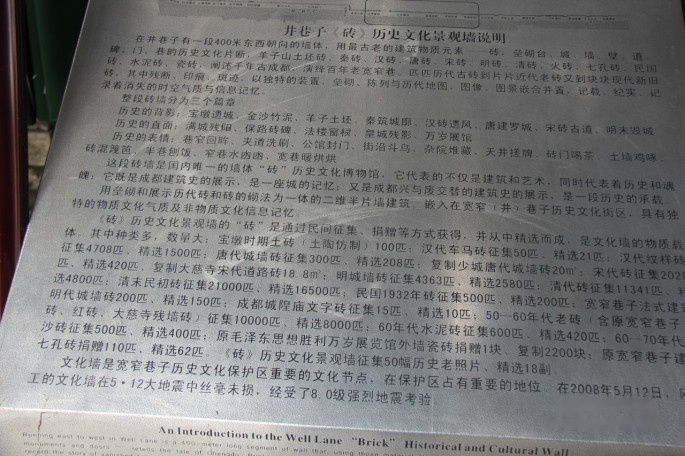 井巷子《砖》历史文化景观墙说明
在井巷子有一段400米东西朝向的墙体，用最古老的建筑物质元素——砖，垒砌台、城、墙、壁、道、
碑、门、巷的历史文化片断：羊子山土坯砖、秦砖、汉砖、唐砖、宋砖、明砖、清砖、火砖、七孔砖、民国
砖、水泥砖、瓷砖，阐述千年古成都，演绎百年老宽窄巷，匹匹历代古砖到片片近代老砖又到块块现代新旧
砖，其中残断、印痕、斑迹，以独特的装置、垒砌、陈列与历代地图、图像、图景嵌合并置，记载、纪实、记
录着消失的时空气质与信息记忆。
整段砖墙分为三个篇章
历史的背影：宝墩遗城、金沙竹泥、羊子土坯、秦筑城廓、汉砖遗风、唐建罗城、宋砖古道、明末毁城
历史的直面：满城残碰、保路砖碑、法楼窗棂、皇城残影、万岁展馆
历史的表情：巷窄回眸、夹道洗刷、公馆封门、街沿斗鸟、杂院堆藏、天井搓牌、砖门喝茶、土墙鸡啄
砖混拽笆、半巷刨饭、窄巷水凼凼、宽巷暖烘烘
这段砖墙是国内唯一的墙体“砖”历史文化博物馆，它代表的不仅是建筑和艺术，同时代表着历史和魂
魄；它既是成都建筑史的展示，是一座城的记忆；又是成都兴与废交替的建筑史的展示，是一段历史的承载。
用垒砌和展示历代砖和砖的砌法为一体的二维半片墙建筑，嵌入在宽窄（井）巷子历史文化街区，具有独
特的物质文化气质及非物质文化信息记忆
《砖》历史文化景观墙的“砖”是通过民间征集、捐赠等方式获得，并从中精选而成，是文化墙的物质载
体。其中种类多，数量大：宝墩时期土砖（土陶仿制）100匹；汉代车马砖征集50匹，精选21匹；汉代纹样砖
征集4708匹，精选1500匹；唐代城墙砖征集300匹、精选208匹；复制少城唐代城墙砖20㎡；宋代砖征集2028
匹、精选420匹，复制大慈寺宋代道路砖18.8㎡；明城墙砖征集4363匹，精选2580匹；清代砖征集11341匹，精
选4800匹；清末民初砖征集21000匹，精选16500匹；民国1932年砖征集500匹，精选200匹；宽窄巷子法式建筑
明代城墙砖200匹、精选150匹；成都城隍庙文字砖征集15匹、精选10匹；50—60年代老砖（含原宽窄巷
砖、红砖、大慈寺残墙砖）征集10000匹，精选8000匹；60年代水泥砖征集600匹、精选420匹；60—70年代
沙砖征集500匹、精选400匹；原毛泽东思想胜利万岁展览馆外墙瓷砖捐赠1块、复制2200块；原宽窄巷子建
七孔砖捐赠110匹、精选62匹。《砖》历史文化景观墙征集50幅历史老照片、精选18副
文化墙是宽窄巷子历史文化保护区重要的文化节点，在保护区占有重要的地位，在2008年5月12日，刚
工的文化墙在5·12大地震中丝毫未损，经受了8.0级强烈地震考验
An Introduction to the Well Lane "Brick" Historical and Cultural Wall
Running east to west in Well Lane is a 400-meter long segment of wall that, using those
monuments and doors